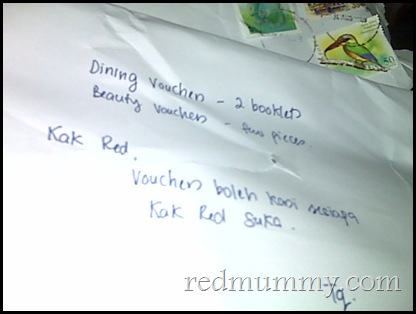 Dining Voucher - 2 booklets
Beauty Voucher - few pieces.
Kak Red.
Voucher boleh kasi sesiapa
Kak Red suka.
-Tq.
redmummy.com
50